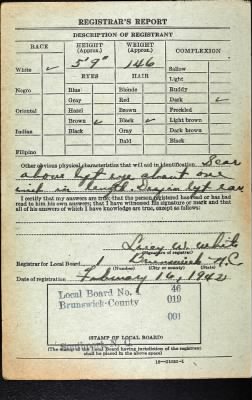 REGISTRAR'S REPORT
DESCRIPTION OF REGISTRANT
RACE HEIGHT (Approx.) WEIGHT (Approx.) COMPLEXION
White ✓ 5'9" 146 Sallow
EYES HAIR Light
Negro Blue Blonde Ruddy
Gray Red Dark ✓
Oriental Hazel Brown Freckled
Brown ✓ Black ✓ Light brown
Indian Black Gray Dark brown
Bald Black
Filipino
Other obvious physical characteristics that will aid in identification Scar
above left eye about one
inch in length. in left ear
I certify that my answers are true; that the person registered has read or has had
read to him his own answers; that I have witnessed his signature or mark and that
all of his answers of which I have knowledge are true, except as follows:
W. White
(Signature of registrar)
Registrar for Local Board 1 Brunswick N.C
(Number) (City or county) (State)
Date of registration February 16, 1942
Local Board No. 1 46
Brunswick-County 019
001
Southport, N. C.
(STAMP OF LOCAL BOARD)
(The stamp of the Local Board having jurisdiction of the registrant
shall be placed in the above space)